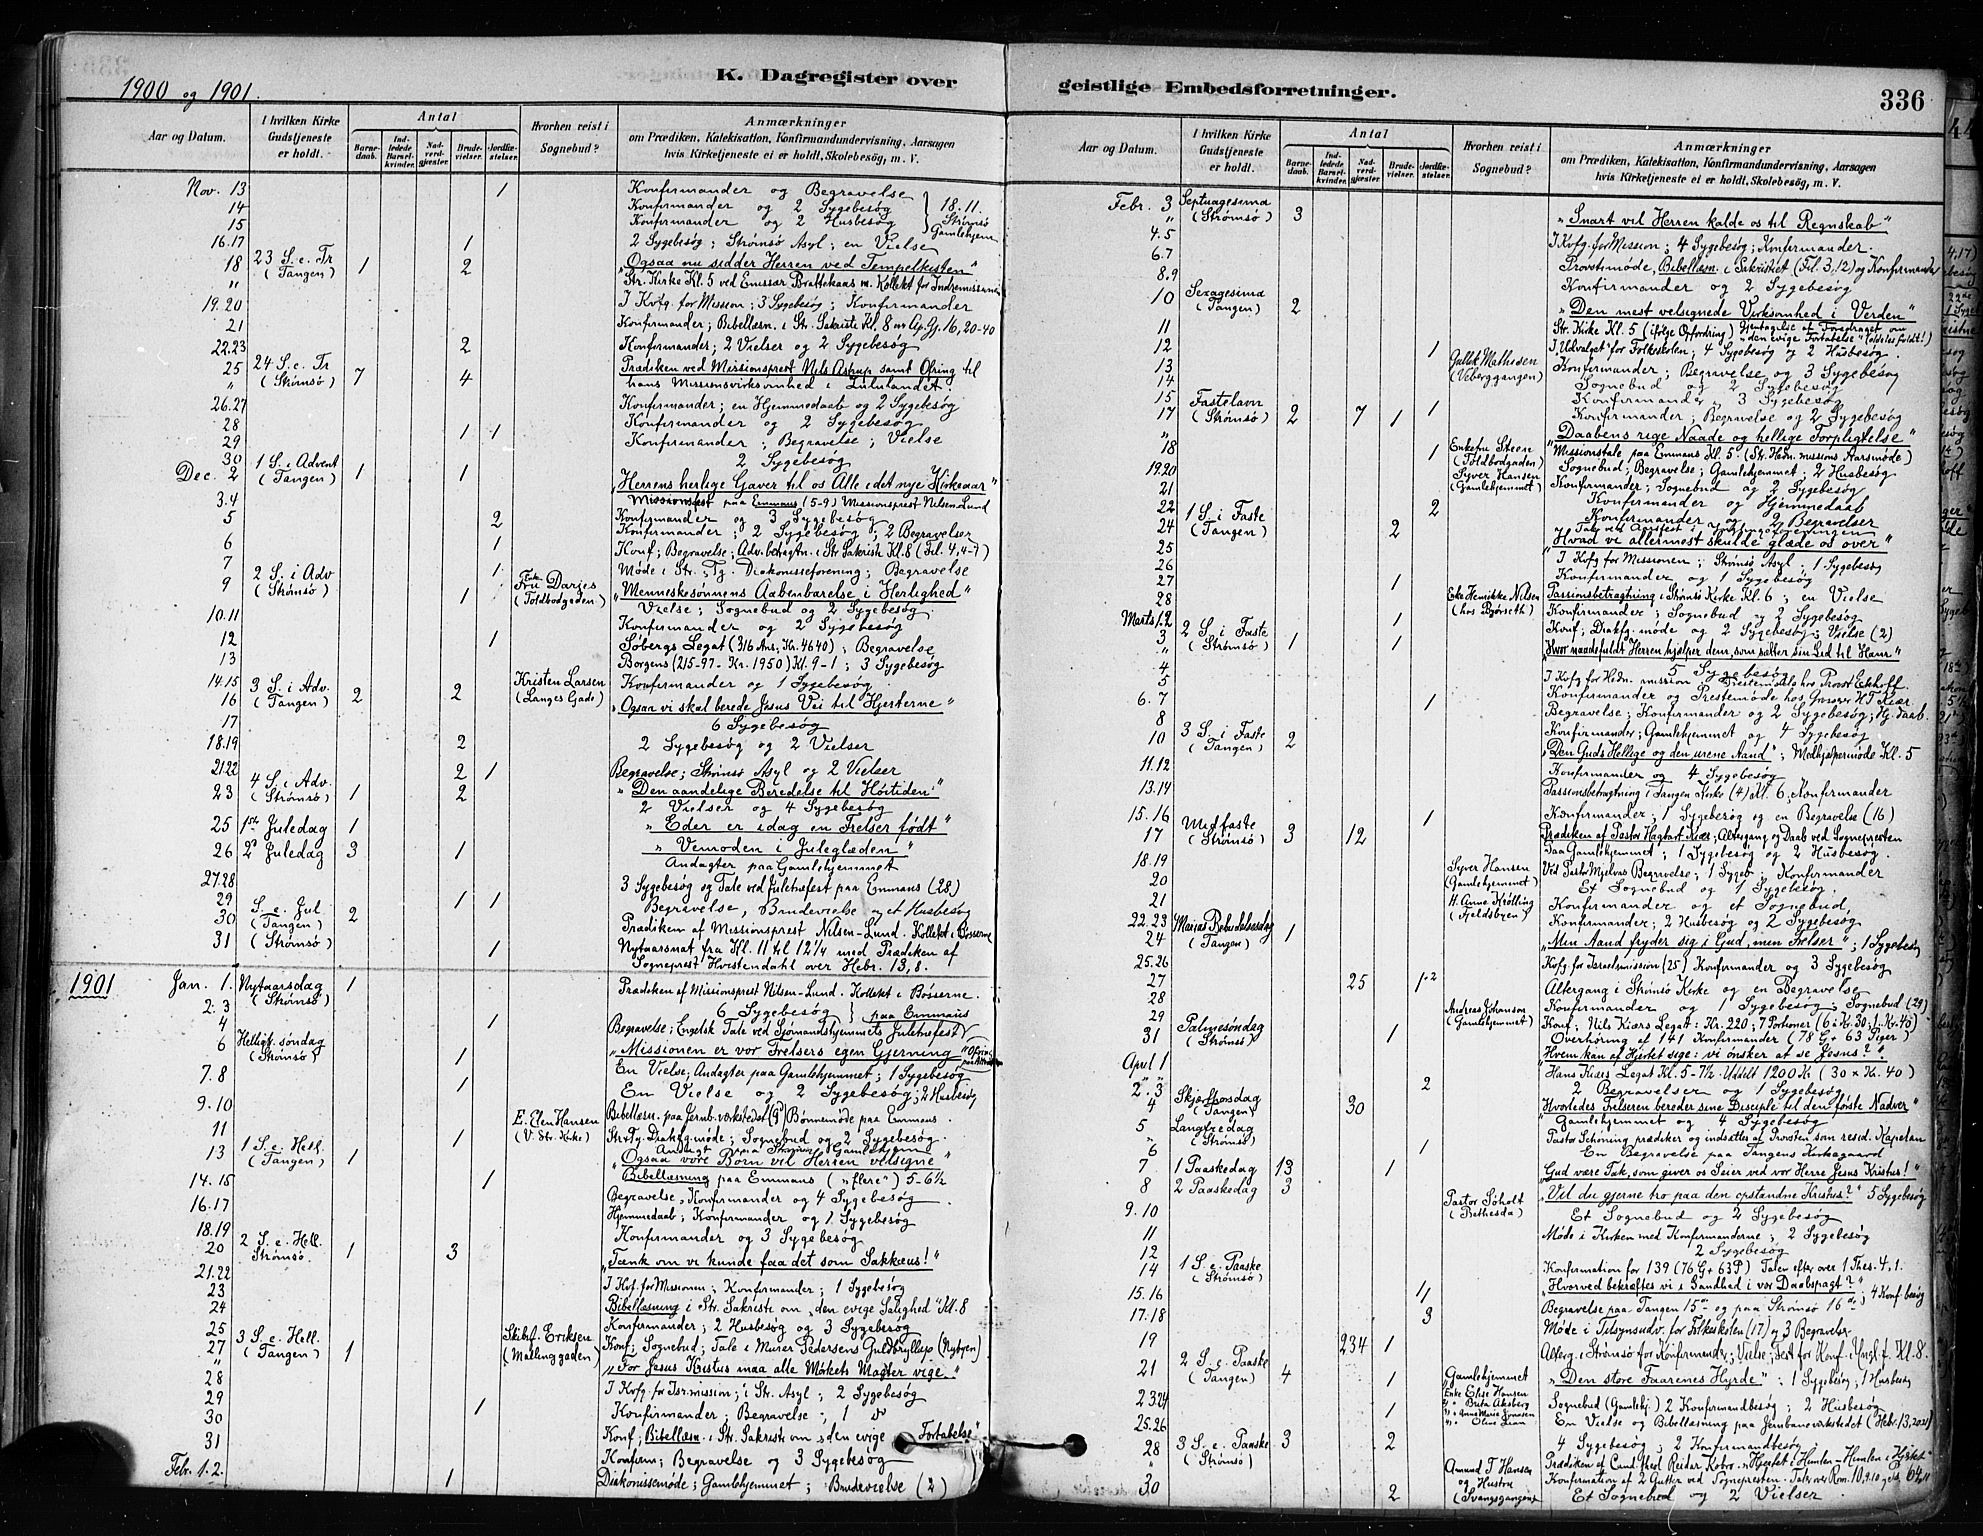 1900 og 1901.
K. Dagregister over
Aar og Datum.
I hvilken Kirke Gudstjeneste er holdt.
Antal
Barnedaab.
Indledede Barselkvinder.
Nadverdgjester.
Brudevielser.
Jordfæstelser.
Hvorhen reist i Sognebud?
Anmærkninger
om Prædiken, Katekisation, Konfirmandundervisning, Aarsagen
hvis Kirketjeneste ei er holdt, Skolebesøg, m. V.
Nov. 13 1 Konfirmander og Begravelse
14 Konfirmander og 2 Sygebesøg } 18.11. Strømsø Gamlehjem
15 Konfirmander og 2 Husbesøg
16.17 1 2 Sygebesøg; Strømsø Asyl; en Vielse
18 23 S. e. Tr (Tangen) 1 2 "Ogsaa nu sidder Herren ved Tempelkisten"
" Str. Kirke Kl. 5 ved Emissær Brattekaas m. Kollekt for Indremissionen
19.20 I Kvfg. for Mission; 3 Sygebesøg; Konfirmander
21 Konfirmander; Bibellæsn. i Str. Sakristi Kl. 8 Ap. Gj. 16, 20-40
22.23 2 Konfirmander; 2 Vielser og 2 Sygebesøg
25 24 S. e. Tr (Strømsø) 7 4 Prædiken ved Missionsprest Nils Astrup samt Ofring til
" hans Missionsvirksomhed i Zululandet.
26.27 Konfirmander; en Hjemmedaab og 2 Sygebesøg
28 Konfirmander og 2 Sygebesøg
29 1 1 Konfirmander; Begravelse; Vielse
30 2 Sygebesøg
Dec. 2 1 S. i Advent (Tangen) 1 1 "Herrens herlige Gaver til os Alle i det nye Kirkeaar"
3.4 Missionsfest paa Emmaus (5-9) Missionsprest Nilsen-Lund
5 2 Konfirmander og 3 Sygebesøg
Konfirmander; 2 Sygebesøg; 2 Begravelser
6 1 Konf; Begravelse; Adv. betragtn. i Str Sakristi Kl. 8 (Fil. 4, 4-7)
7 1 Møde i Str. Tg. Diakonisseforening; Begravelse
9 2 S. i Adv (Strømsø) 1 Enke Fru Darjes (Toldbodgaden) "Menneskesønnens Aabenbarelse i Herlighed"
Vielse; Sognebud og 2 Sygebesøg.
10.11 Konfirmander og 2 Sygebesøg
12 1 Søbergs Legat (316 Ans; Kr. 4640); Begravelse
13 Borgens (215-97- Kr. 1950) Kl. 9-1; 3 Sygebesøg
14.15 Kristen Larsen (Langes Gade) Konfirmander og 1 Sygebesøg
16 3 S. i Adv. (Tangen) 2 2 "Ogsaa vi skal berede Jesus Vei til Hjerterne"
17 6 Sygebesøg
18.19 2 2 Sygebesøg og 2 Vielser
21.22 2 1 Begravelse; Strømsø Asyl og 2 Vielser
23 4 S. i Adv. (Strømsø) 1 2 "Den aandelige Beredelse til Høitiden"
2 Vielser og 4 Sygebesøg
25 1ste Juledag 1 "Eder er idag en Frelser født"
26 2d Juledag 3 1 "Vemoden i Juleglæden"
Andagter paa Gamlehjemmet
27.28 3 Sygebesøg og Tale ved Juletræfest paa Emmaus (28.)
29 1 1 Begravelse, Brudevielse og et Husbesøg
30 S. e. Jul (Tangen) 2 Prædiken af Missionsprest Nilsen-Lund. Kollekt i Bøsserne
31 (Strømsø) 1 Nytaarsnat fra Kl. 11 til 12 1/4 med Prædiken af
Sogneprest Hvistendahl over Hebr. 13, 8.
1901 Jan. 1. Nytaarsdag (Strømsø) 1 Prædiken af Missionsprest Nilsen-Lund. Kollekt i Bøsserne.
2. 3 6 Sygebesøg } paa Emmaus
4 1 Begravelse; Engelsk Tale ved Sjømandshjemmets Juletræfest
6 Helligt. søndag (Strømsø) 1 "Missionen er vor Frelsers egen Gjerning"
7. 8 1 En Vielse; Andagter paa Gamlehjemmet; 1 Sygebesøg
En Vielse og 2 Sygebesøg; 2 Husbesøg
9. 10 Bibellæsn. paa Jernb. værkstedet (9d) Bønnemøde paa Emmaus.
11 E. Elen Hansen (V. Str. Kirke) 1 Str+Tg. Diakfg. møde; Sognebud og 2 Sygebesøg.
13 1 S. e. Hell. (Tangen) 1 "Ogsaa vore Børn vil Herren velsigne"
14. 15 1 Bibellæsning paa Emmaus ("flere") 5-6 1/2
16.17 Begravelse, Konfirmander og 4 Sygebesøg
Hjemmedaab; Konfirmander og 1 Sygebesøg
18.19 Konfirmander og 3 Sygebesøg
20 2 S. e. Hell. Strømsø 1 3 "Tænk om vi kunde faa det som Sakkæus!"
21.22 I Kvf. for Missionen; Konfirmander; 1 Sygebesøg
23 Bibellæsning i Str. Sakristi om "den evige Salighed" Kl. 8
24 Konfirmander; 2 Husbesøg og 3 Sygebesøg
25 Skibsf. Eriksen (Mallinggaden) Konf; Sognebud; Tale i Murer Pedersens Guldbryllup (Nybyen)
27 3 S. e. Hell. (Tangen) 1 "For Jesus Kristus maa alle Mørkets Magter vige."
28 I Kvfg. for Isr. mission; i Str. Asyl; 2 Sygebesøg
29 1 Konfirmander; Begravelse; 1 do
30 Konf; Bibellæsn. i Str. Sakristi om "den evige Fortabelse"
31 Konfirm; Begravelse og 3 Sygebesøg
Febr. 1.2. 1 Diakonissemøde; Gamlehjemmet; Brudevielse (2)
geistlige Embedsforretninger.
336
Aar og Datum.
I hvilken Kirke Gudstjeneste er holdt.
Antal
Barnedaab.
Indledede Barselkvinder.
Nadverdgjester.
Brudevielser.
Jordfæstelser.
Hvorhen reist i Sognebud?
Anmærkninger
om Prædiken, Katekisation, Konfirmandundervisning, Aarsagen
hvis Kirketjeneste ei er holdt, Skolebesøg, m. V.
Febr. 3 Septuagesima (Strømsø) 3 "Snart vil Herren kalde os til Regnskab"
4.5 I Kvfg. for Mission; 4 Sygebesøg; Konfirmander.
6.7 Provstemøde, Bibellæsn. i Sakristiet (Fil. 3, 12) og Konfirmander
8.9 Konfirmander og 2 Sygebesøg
10 Sexagesima (Tangen) 2 "Den mest velsignede Virksomhed i Verden"
11 Str. Kirke Kl. 5 (ifølge Opfordring) Gentagelse af Foredraget om "den evige Fortabelse"
12 1 I Udvalget for Folkeskolen; 4 Sygebesøg og 2 Husbesøg.
13 Gullik Mathisen (Veberggangen) Konfirmander; Begravelse og 3 Sygebesøg
14 Sognebud og 2 Sygebesøg
15 1 Konfirmander 3 Sygebesøg
17 Fastelavn (Strømsø) 2 7 1 Konfirmander; Begravelse og 2 Sygebesøg
" "Daabens rige Naade og hellige Forpligtelse"
18 1 Enkefru Steen (Toldbodgaden) Missionstale paa Emmaus Kl. 5 (Str. Hedn. missions Aarsmøde)
19.20 Syver Hansen (Gamlehjemmet) Sognebud; Begravelse; Gamlehjemmet. 2 Husbesøg
21 Konfirmander; Sognebud og 2 Sygebesøg
22 2 Konfirmander og Hjemmedaab
24 1 S. i Faste (Tangen) 2 Konfirmander og 2 Begravelser
"Hvad vi allermest skulde glæde os over"
25 I Kvfg for Missionen; Strømsø Asyl; 1 Sygebesøg
26 Konfirmander og 1 Sygebesøg
27 1 Passionsbetragtning i Strømsø Kirke Kl. 6; en Vielse
28 Enke Henrikke Nilsen (hos Bjørseth) Konfirmander; Sognebud og 2 Sygebesøg
Marts 1.2 1 Konf; Diakfg. møde og 2 Sygebesøg; Vielse (2)
3 2 S. i Faste (Strømsø) 1 1 "Hvor naadefuldt Herren hjælper dem, som sætter sin Lid til Ham"
4 5 Sygebesøg
5 I Kvfg for Hedn. mission Prestemøde hos Provst Eckhoff
6. 7 1 Konfirmander og Prestemøde hos
8 Begravelse; Konfirmander og 2 Sygebesøg; Hj. daab.
10 3 S. i Faste (Tangen) 2 Konfirmander; Gamlehjemmet og 4 Sygebesøg
"Den Guds Hellige og den urene Aand"; Medhjælpermøde Kl. 5
11.12 Konfirmander og 4 Sygebesøg
13.14 Passionsbetragtning i Tangen Kirke (4) Kl. 6, Konfirmander
15. 16 1 Konfirmander; 1 Sygebesøg og en Begravelse (16)
17 Midfaste (Strømsø) 3 12 Prædiken af Pastor Hagbart Kiær; Altergang og Daab ved Sognepresten
18.19 Paa Gamlehjemmet; 1 Sygebesøg og 2 Husbesøg.
20 Syver Hansen (Gamlehjemmet) Ved Pastor Mjelvas Begravelse; 1 Sygeb.; Konfirmander
Et Sognebud og 1 Sygebesøg.
21 H. Anne Krölling (Fjeldsbyen) Konfirmander og et Sognebud,
22. 23 Konfirmander; 2 Husbesøg og 2 Sygebesøg
24 Marias Bebudelsesdag (Tangen) 1 "Min Aand fryder sig i Gud, min Frelser"; 1 Sygebesøg
25.26 Kvfg. for Israelsmission (25) Konfirmander og 3 Sygebesøg
27 25 1.2 Altergang i Strømsø Kirke og en Begravelse
28 Andreas Johnson (Gamlehjemmet) Konfirmander og 1 Sygebesøg; Sognebud (29)
29 Konf; Nils Kiærs Legat: Kr. 220; 7 Portioner (6 à Kr. 30; 1 Kr. 40)
31 Palmesøndag (Strømsø) 1 Overhøring af 141 Konfirmander (78 G + 63 Piger)
"Hvem kan af Hjertet sige: vi ønsker at se Jesus?".
April 1 Hans Kiærs Legat Kl. 5-7 1/2. Uddelt 1200 Kr (30 x Kr. 40)
2. 3 2 2 Begravelser og 1 Sygebesøg
4 Skjærtorsdag (Tangen) 30 "Hvorledes Frelseren bereder sine Disciple til den første Nadver"
Gamlehjemmet og 4 Sygebesøg
5 Langfredag (Strømsø) Pastor Schøning prædiker og indsættes af Provsten som resid. Kapelan
6 1 En Begravelse paa Tangens Kirkegaard
7 1 Paaskedag 13 1 "Gud være Tak, som giver os Seier ved vor Herre Jesus Kristus!"
8 2 Paaskedag 3 "Vil du gjerne tro paa den opstandne Kristus?" 5 Sygebesøg
9. 10 Pastor Søholt (Bethesda) Et Sognebud og 2 Sygebesøg
11 Møde i Kirken med Konfirmanderne; 2 Sygebesøg
12 2 Sygebesøg
14 1 S. e. Paaske (Strømsø) Konfirmation for 139 (76 G + 63 P) Talen efter over 1 Thes. 4, 1.
"Hvorved bekræftes vi i Sandhed i vor Daabspagt?"; 4 Konf. besøg
15. 16 1/1 Begravelse paa Tangen 15de og paa Strømsø 16de
17.18 3 Møde i Tilsynsudv. for Folkeskolen (17) og 3 Begravelser
19 234 1 Alterg. i Strømsø for Konfirmander; Vielse; Fest for Konf. i Ungl. f. Kl. 8.
21 2 S. e. Paaske (Tangen) 4 1 Gamlehjemmet "Den store Faarenes Hyrde"; 1 Sygebesøg; 1 Husbesøg
23.24 1 Enke Elise Hansen Sognebud (Gamlehj.) 2 Konfirmandbesøg; 2 Husbesøg
25.26 En Vielse og Bibellæsning paa Jernbaneværkstedet (Hebr. 13, 20.21)
28 3 S. e. Paaske (Strømsø) 3 2 4 Sygebesøg; 2 Konfirmandbesøg
Amund T. Hansen og Hustru (Svangsgangen) Prædiken af Cand. theol. Reidar Kobro "Hjertet i Himlen - Himlen i Hjertet"
Konfirmation af 2 Gutter ved Sognepresten. Tale over Rom. 10, 9.10
30 2 Et Sognebud og 2 Vielser